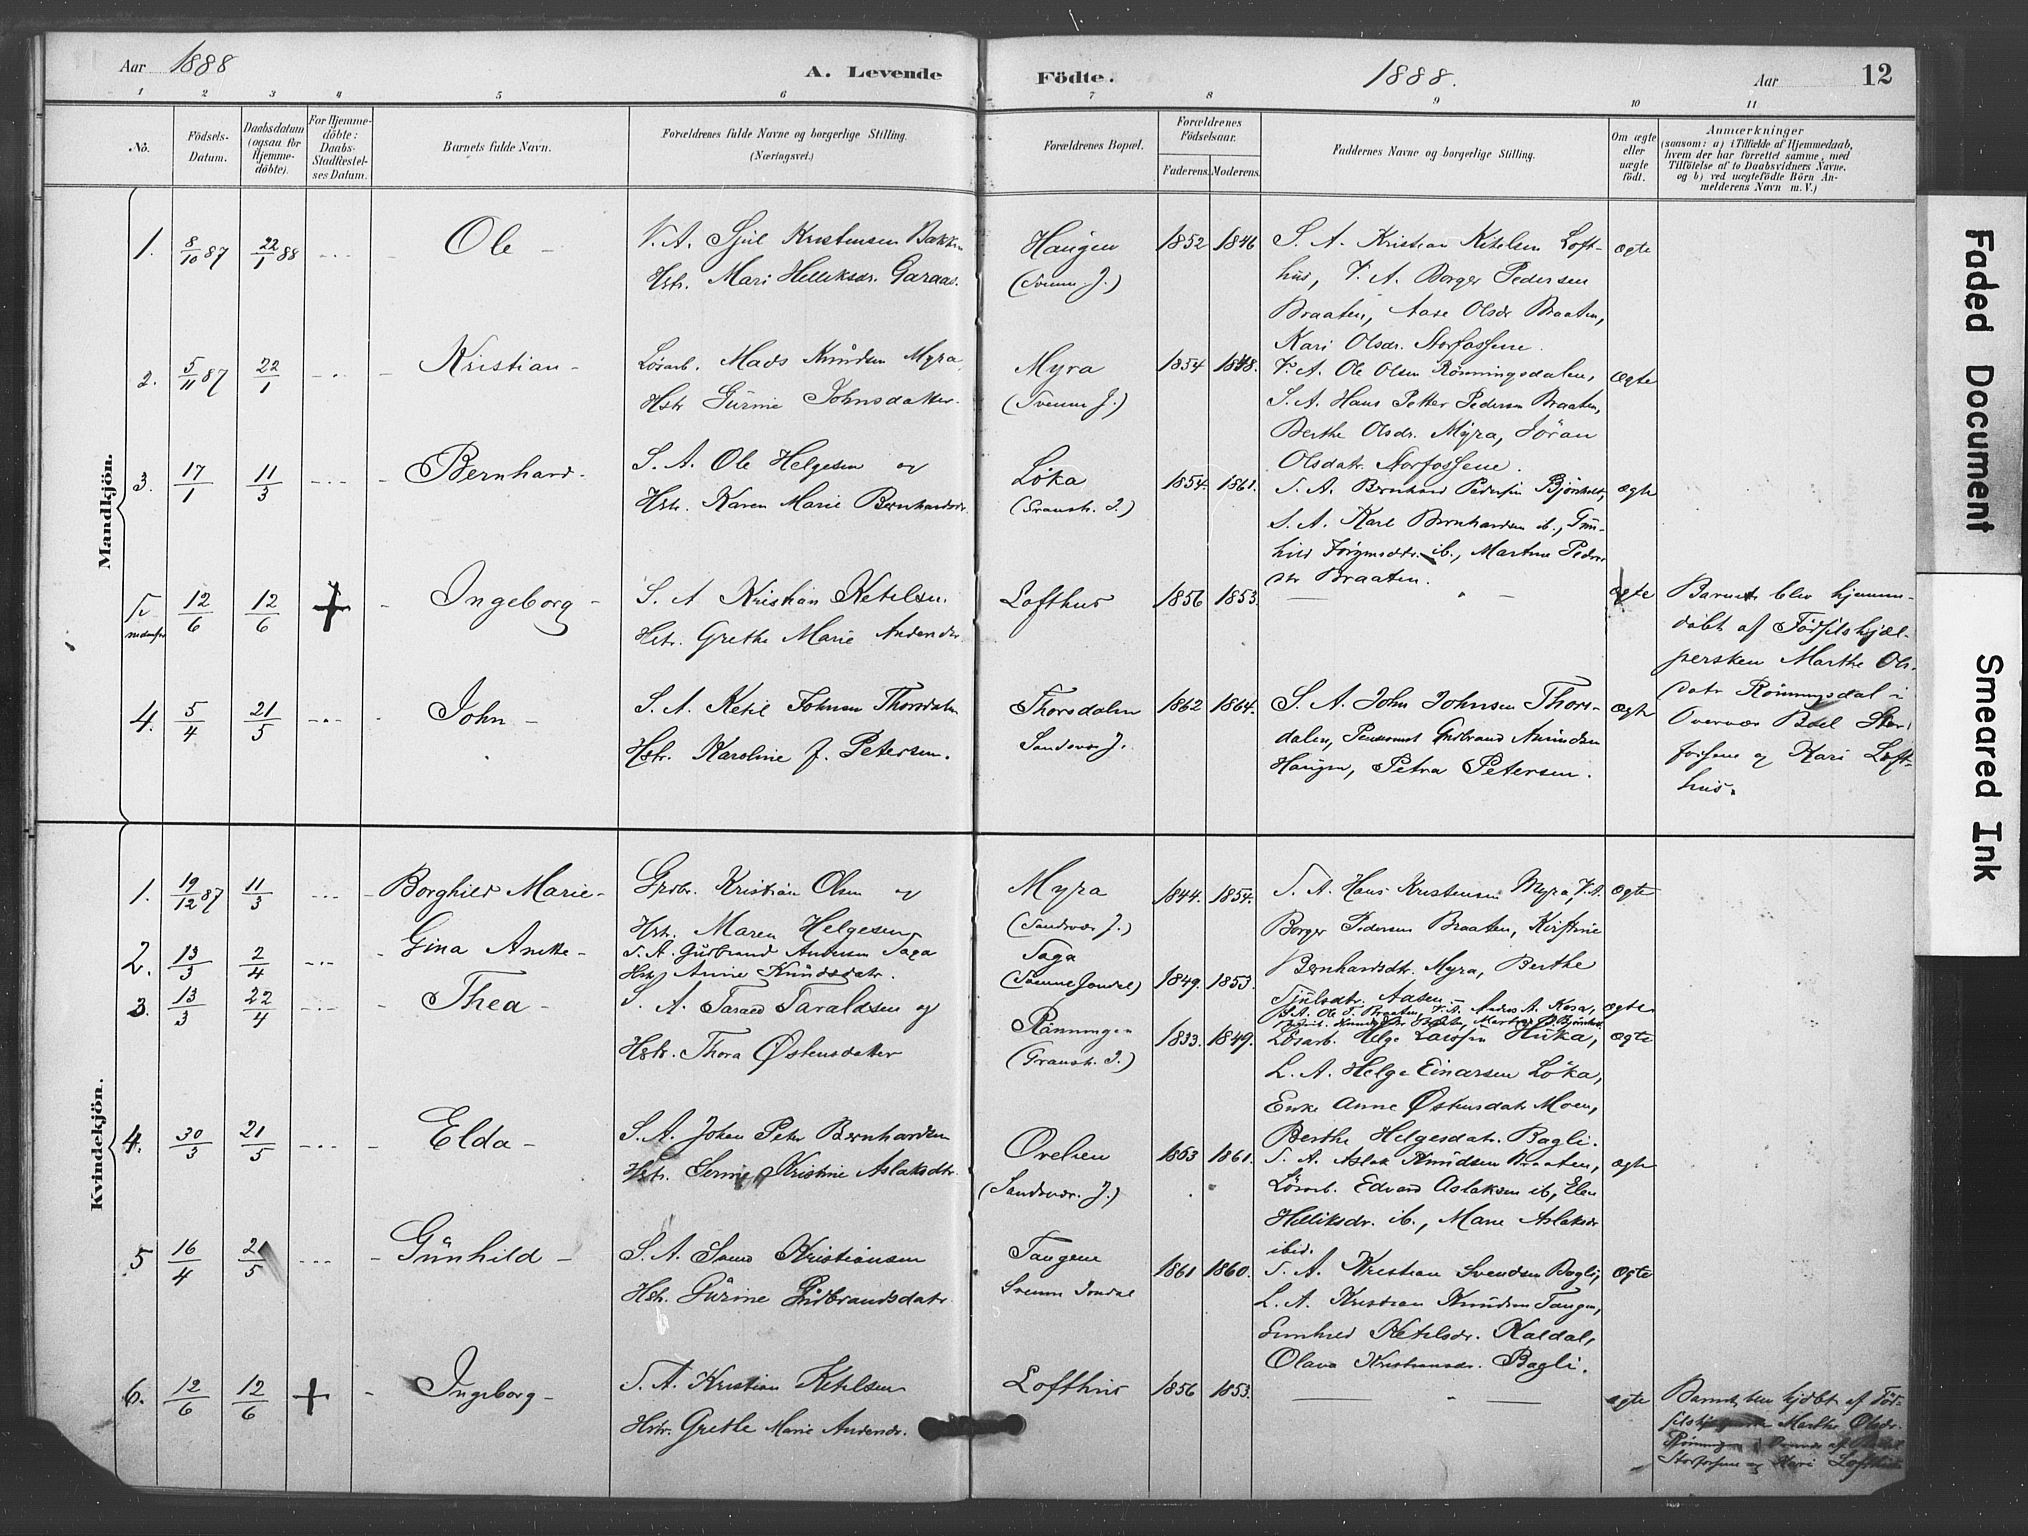 Aar 1888
A. Levende Födte.
1888.
Aar
12
1 2 3 4 5 6 7 8 9 10 11
No.
Födsels-
Datum.
Daabsdatum
(ogsaa for
Hjemme-
döbte).
For Hjemme-
döbte:
Daabs-
Stadfæstel-
ses Datum.
Barnets fulde Navn.
Forældrenes fulde Navne og borgerlige Stilling.
(Næringsvei.)
Forældrenes Bopæl.
Forældrenes
Födselsaar.
Faderens. Moderens.
Faddernes Navne og borgerlige Stilling.
Om ægte
eller
uægte
födt.
Anmærkninger
(saasom: a) i Tilfælde af Hjemmedaab,
hvem der har forrettet samme, med
Tilföielse af to Daabsvidners Navne,
og b) ved uægtefödte Börn An-
melderens Navn m. V.)
Mandkjön.
1. 8/10 87 22/1 88 Ole
V. A. Kristensen Bakken
Hstr. Mari Helliksdr. Garaas.
Haugen
(Svenn. J.)
1852 1846
S. A. Kristian Ketelsen Loft-
hus, V. A. Borger Pedersen
Braaten, Aase Olsdr Braaten,
Kari Olsdr. Storfossene.
ægte
2. 5/11 87 22/1 Kristian
Løsarb. Mads Knudsen Myra
Hstr Gurine Johnsdatter.
Myra
(Svenn J.)
1854 1848.
V. A. Ole Olsen Rönningsdalen,
S. A. Hans Petter Pedersen Braaten,
Berthe Olsdr. Myra, Jöran
Olsdatr. Storfossene.
ægte
3. 17/1 11/3 Bernhard
S. A. Ole Helgesen og
Hstr. Karen Marie Bernhardsdr.
Löka
(Gransh. J.)
1854. 1861.
S. A. Bernhard Pedersen
S. A. Karl Bernhardsen ib., Gun-
hild Jörgensdtr. ib., Martine Peders
dtr Braaten.
ægte
12/6 12/6 + Ingeborg
S. A Kristian Ketelsen.
Hstr. Grethe Marie Andersdr
Lofthus
1856 1853.
ægte
Barnet blev hjemme-
döbt af Födselshjæl-
persken Marthe Ols-
datr Rönningsdal i
Overvær Stor-
fossene og Kari Loft-
hus.
4. 5/4 21/5 John
S. A. Ketil Johnsen Thorsdalen
Hstr. Karoline J. Petersen.
Thorsdalen
Sandsvær J.
1862 1864.
S. A. John Johnsen Thors-
dalen, Gudbrand Amundsen
Haugen, Petra Petersen.
ægte
Kvindekjön.
1. 19/12 87 11/3 Borghild Marie
Grdbr. Kristian Olsen og
Hstr. Maren Helgesen
Myra
(Sandsvær J.)
1844. 1854.
S. A. Hans Kristensen Myra, V. A.
Borger Pedersen Braaten, Kirstine
Bernhardsdtr. Myra, Berthe
ægte
2. 13/3 2/4 Gina Anette
S. A. Gudbrand Andersen Saga
Hstr. Anne Knudsdatr.
Saga
(Svenne Jondal)
1849. 1853.
ægte
3. 13/3 22/4 Thea
S. A. Taraldsen og
Hstr. Thora Østensdatter
Rönningen
(Gransh. J.)
1833. 1849.
Løsarb. Helge Larssen Huka,
L. A. Helge Einarsen Löka,
Enke Anne Østensdatr Moen,
Berthe Helgesdatr. Bagli.
ægte
4. 30/3 21/5 Elda
S. A. Johan Peter Bernhardsen
Hstr. Kristine Aslaksdtr.
(Sandsvær. J.)
1863 1861.
S. A. Aslak Knudsen Braaten,
Løsarb. Edvard Aslaksen ib, Elen
Helliksdr. ib., Marie Aslaksdr
ibid.
ægte
5 16/4 2/5 Gunhild
S. A. Kristiansen
Hstr. Gurine Gudbrandsdatr.
Tangene
Svenne Jondal
1861 1860.
S. A. Kristian Svendsen Bagli,
L. A. Kristian Knudsen Tangen,
Gunhild Ketelsdr. Kaldal,
Olava Kristiansdr. Bagli.
ægte
6. 12/6 12/6 + Ingeborg
S. A. Kristian Ketelsen
Hstr. Grethe Marie Andersdr.
Lofthus
1856 1853.
ægte
Barnet blev hjdöbt af Föd-
Marthe Olsdr.
Storfossene og Kari Lofthus
Faded Document
Smeared Ink